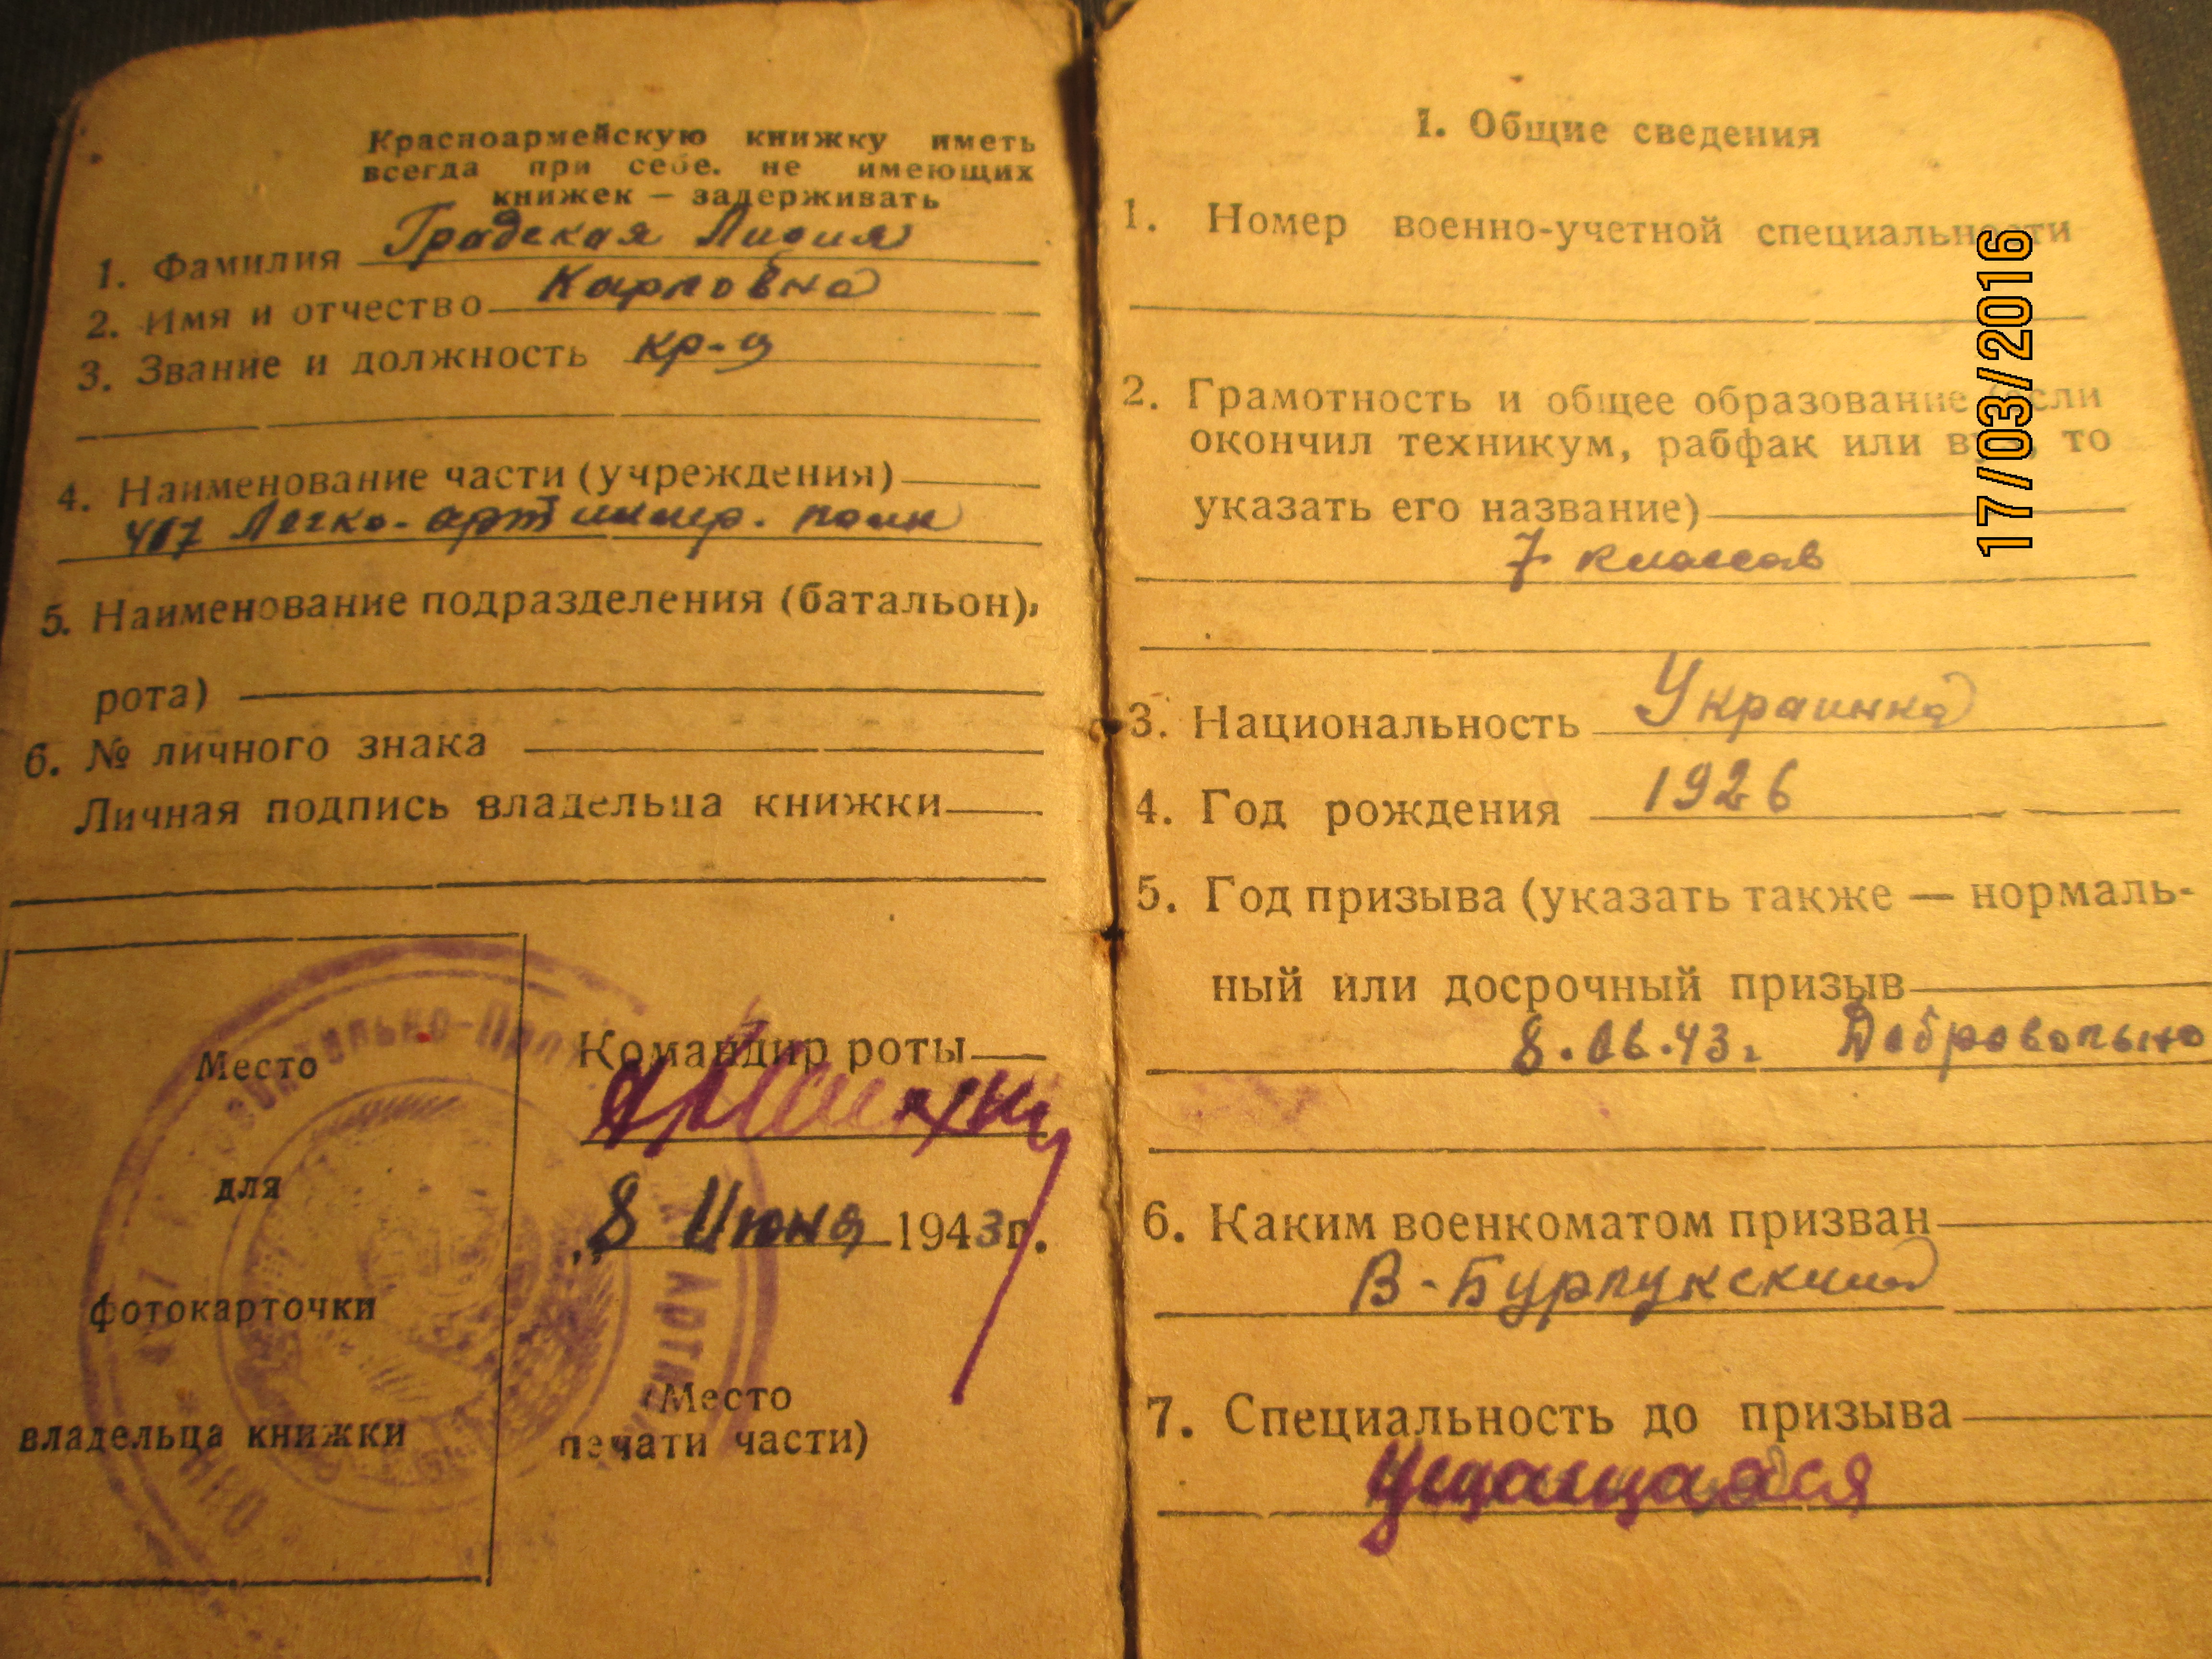 Красноармейскую книжку иметь
всегда при себе. не имеющих
книжек — задерживать
1. Фамилия Градская Лидия
2. Имя и отчество Карловна
3. Звание и должность кр-ц
4. Наименование части (учреждения)
417 Легко-арт полк
5. Наименование подразделения (батальон,
рота)
6. № личного знака
Личная подпись владельца книжки
Место
для
фотокарточки
владельца книжки
Командир роты
„8 Июня 1943г.
(Место
печати части)
I. Общие сведения
1. Номер военно-учетной специальности
2. Грамотность и общее образование (если
окончил техникум, рабфак или вуз, то
указать его название)
7 классов
3. Национальность Украинка
4. Год рождения 1926
5. Год призыва (указать также — нормаль-
ный или досрочный призыв
8.06.43г. Добровольно
6. Каким военкоматом призван
В-Бурлукским
7. Специальность до призыва
учащаяся
17/03/2016